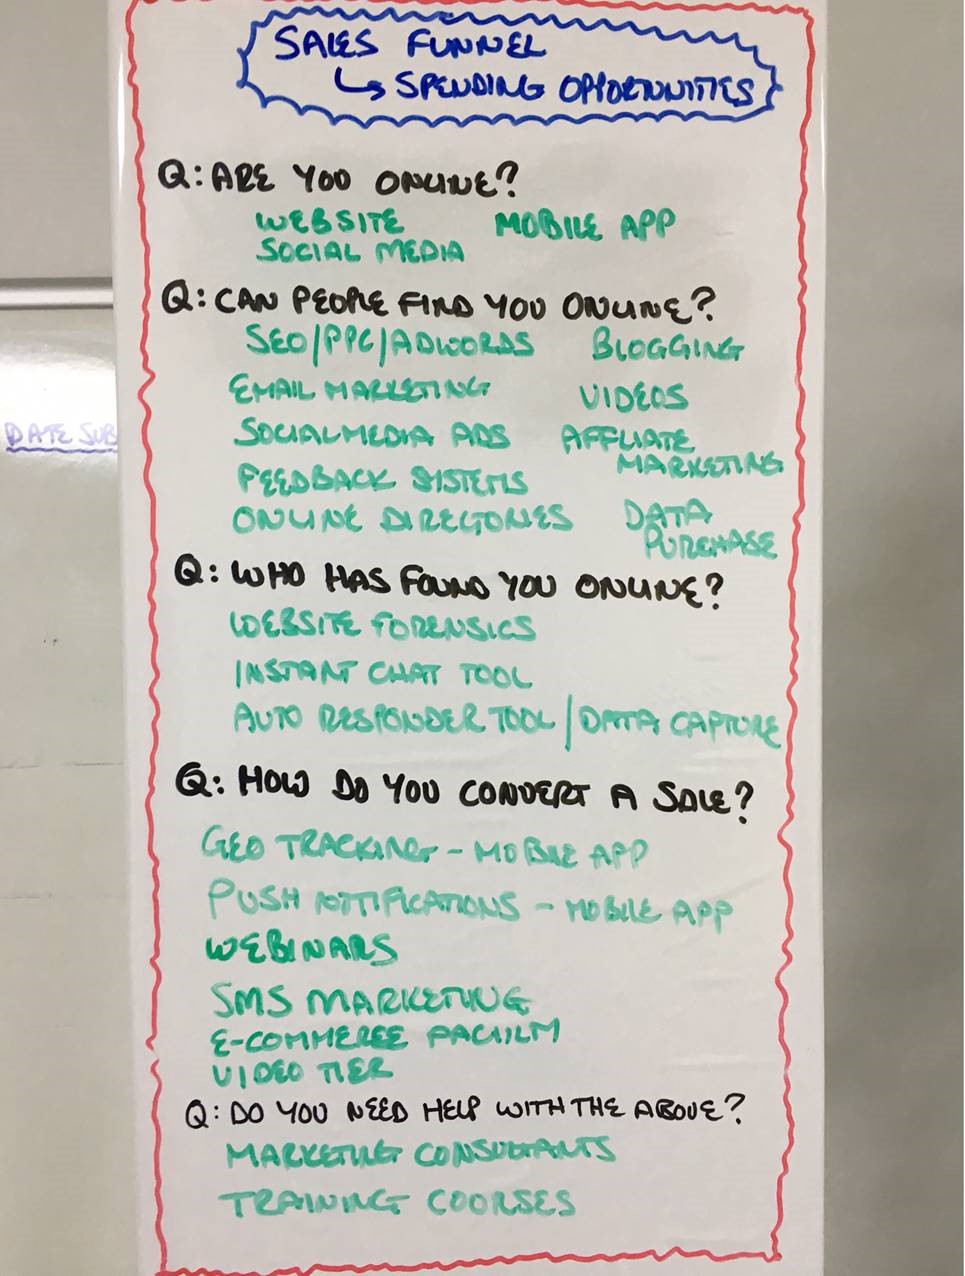 SALES FUNNEL
↳ SPENDING OPPORTUNITIES
Q: ARE YOU ONLINE?
WEBSITE MOBILE APP
SOCIAL MEDIA
Q: CAN PEOPLE FIND YOU ONLINE?
SEO/PPC/ADWORDS BLOGGING
EMAIL MARKETING VIDEOS
SOCIAL MEDIA ADS AFFLIATE
MARKETING
FEEDBACK SYSTEMS
ONLINE DIRECTORIES DATA
PURCHASE
Q: WHO HAS FOUND YOU ONLINE?
WEBSITE FORENSICS
INSTANT CHAT TOOL
AUTO RESPONDER TOOL / DATA CAPTURE
Q: HOW DO YOU CONVERT A SALE?
GEO TRACKING - MOBILE APP
PUSH NOTIFICATIONS - MOBILE APP
WEBINARS
SMS MARKETING
E-COMMERCE
VIDEO TIER
Q: DO YOU NEED HELP WITH THE ABOVE?
MARKETING CONSULTANTS
TRAINING COURSES
DATE SUB